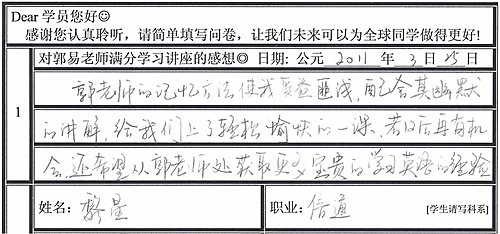 Dear 学员您好☺
感谢您认真聆听，请简单填写问卷，让我们未来可以为全球同学做得更好!
对郭易老师满分学习讲座的感想◎ 日期: 公元 2011 年 3 日 25 日
1
郭老师的记忆方法使我受益匪浅，配合其幽默
的讲解，给我们上了轻松愉快的一课，若日后再有机
会，还希望从郭老师处获取更多宝贵的学习英语的经验
姓名: 繁星
职业: 信通
[学生请写科系]